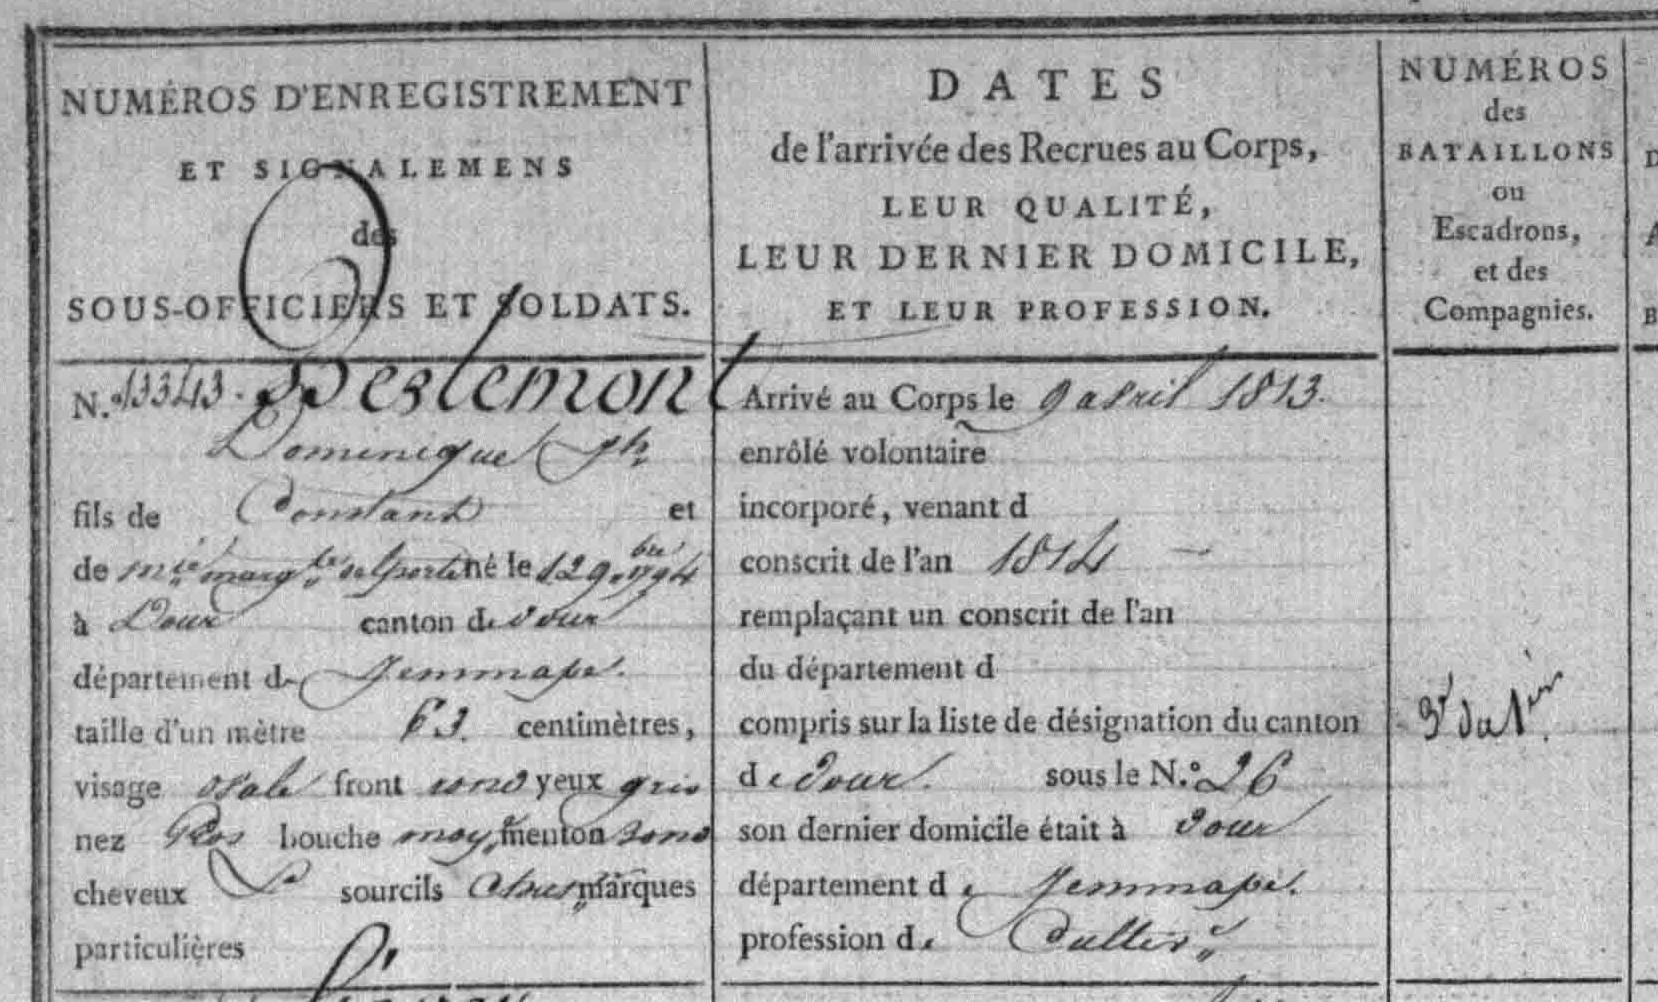 NUMÉROS D'ENREGISTREMENT
ET SIGNALEMENS
des
SOUS-OFFICIERS ET SOLDATS.
DATES
de l'arrivée des Recrues au Corps,
LEUR QUALITÉ,
LEUR DERNIER DOMICILE,
ET LEUR PROFESSION.
NUMÉROS
des
BATAILLONS
ou
Escadrons,
et des
Compagnies.
N.º 13343. Destemont
Dominique Jh
fils de Constant et
de mie margte delporte né le 12 9.bre 1794
à Dour canton de dour
département de Jemmape.
taille d'un mètre 63 centimètres,
visage ovale front rond yeux gris
nez gros bouche moy. menton rond
cheveux sourcils marques
particulières
Arrivé au Corps le 9 avril 1813.
enrôlé volontaire
incorporé, venant d
conscrit de l'an 1814
remplaçant un conscrit de l'an
du département d
compris sur la liste de désignation du canton
de dour. sous le N.º 26
son dernier domicile était à dour
département de Jemmape.
profession de
3e du 1er